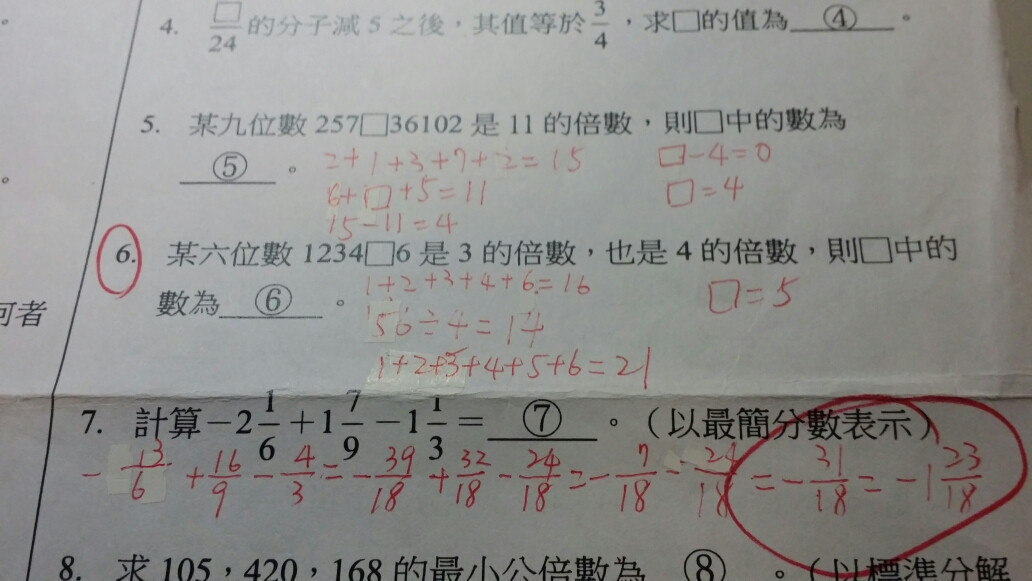 4. □/24 的分子減 5 之後，其值等於 3/4，求□的值為 ④ 。
5. 某九位數 257□36102 是 11 的倍數，則□中的數為
⑤ 。
2+1+3+7+2=15 □-4=0
6+□+5=11 □=4
15-11=4
6. 某六位數 1234□6 是 3 的倍數，也是 4 的倍數，則□中的
數為 ⑥ 。
1+2+3+4+6=16 □=5
56÷4=14
1+2+3+4+5+6=21
何者
7. 計算 -2 1/6 + 1 7/9 - 1 1/3 = ⑦ 。（以最簡分數表示）
- 13/6 + 16/9 - 4/3 = - 39/18 + 32/18 - 24/18 = - 7/18 - 24/18 = - 31/18 = -1 23/18
8. 求 105，420，168 的最小公倍數為 ⑧ 。（以標準分解